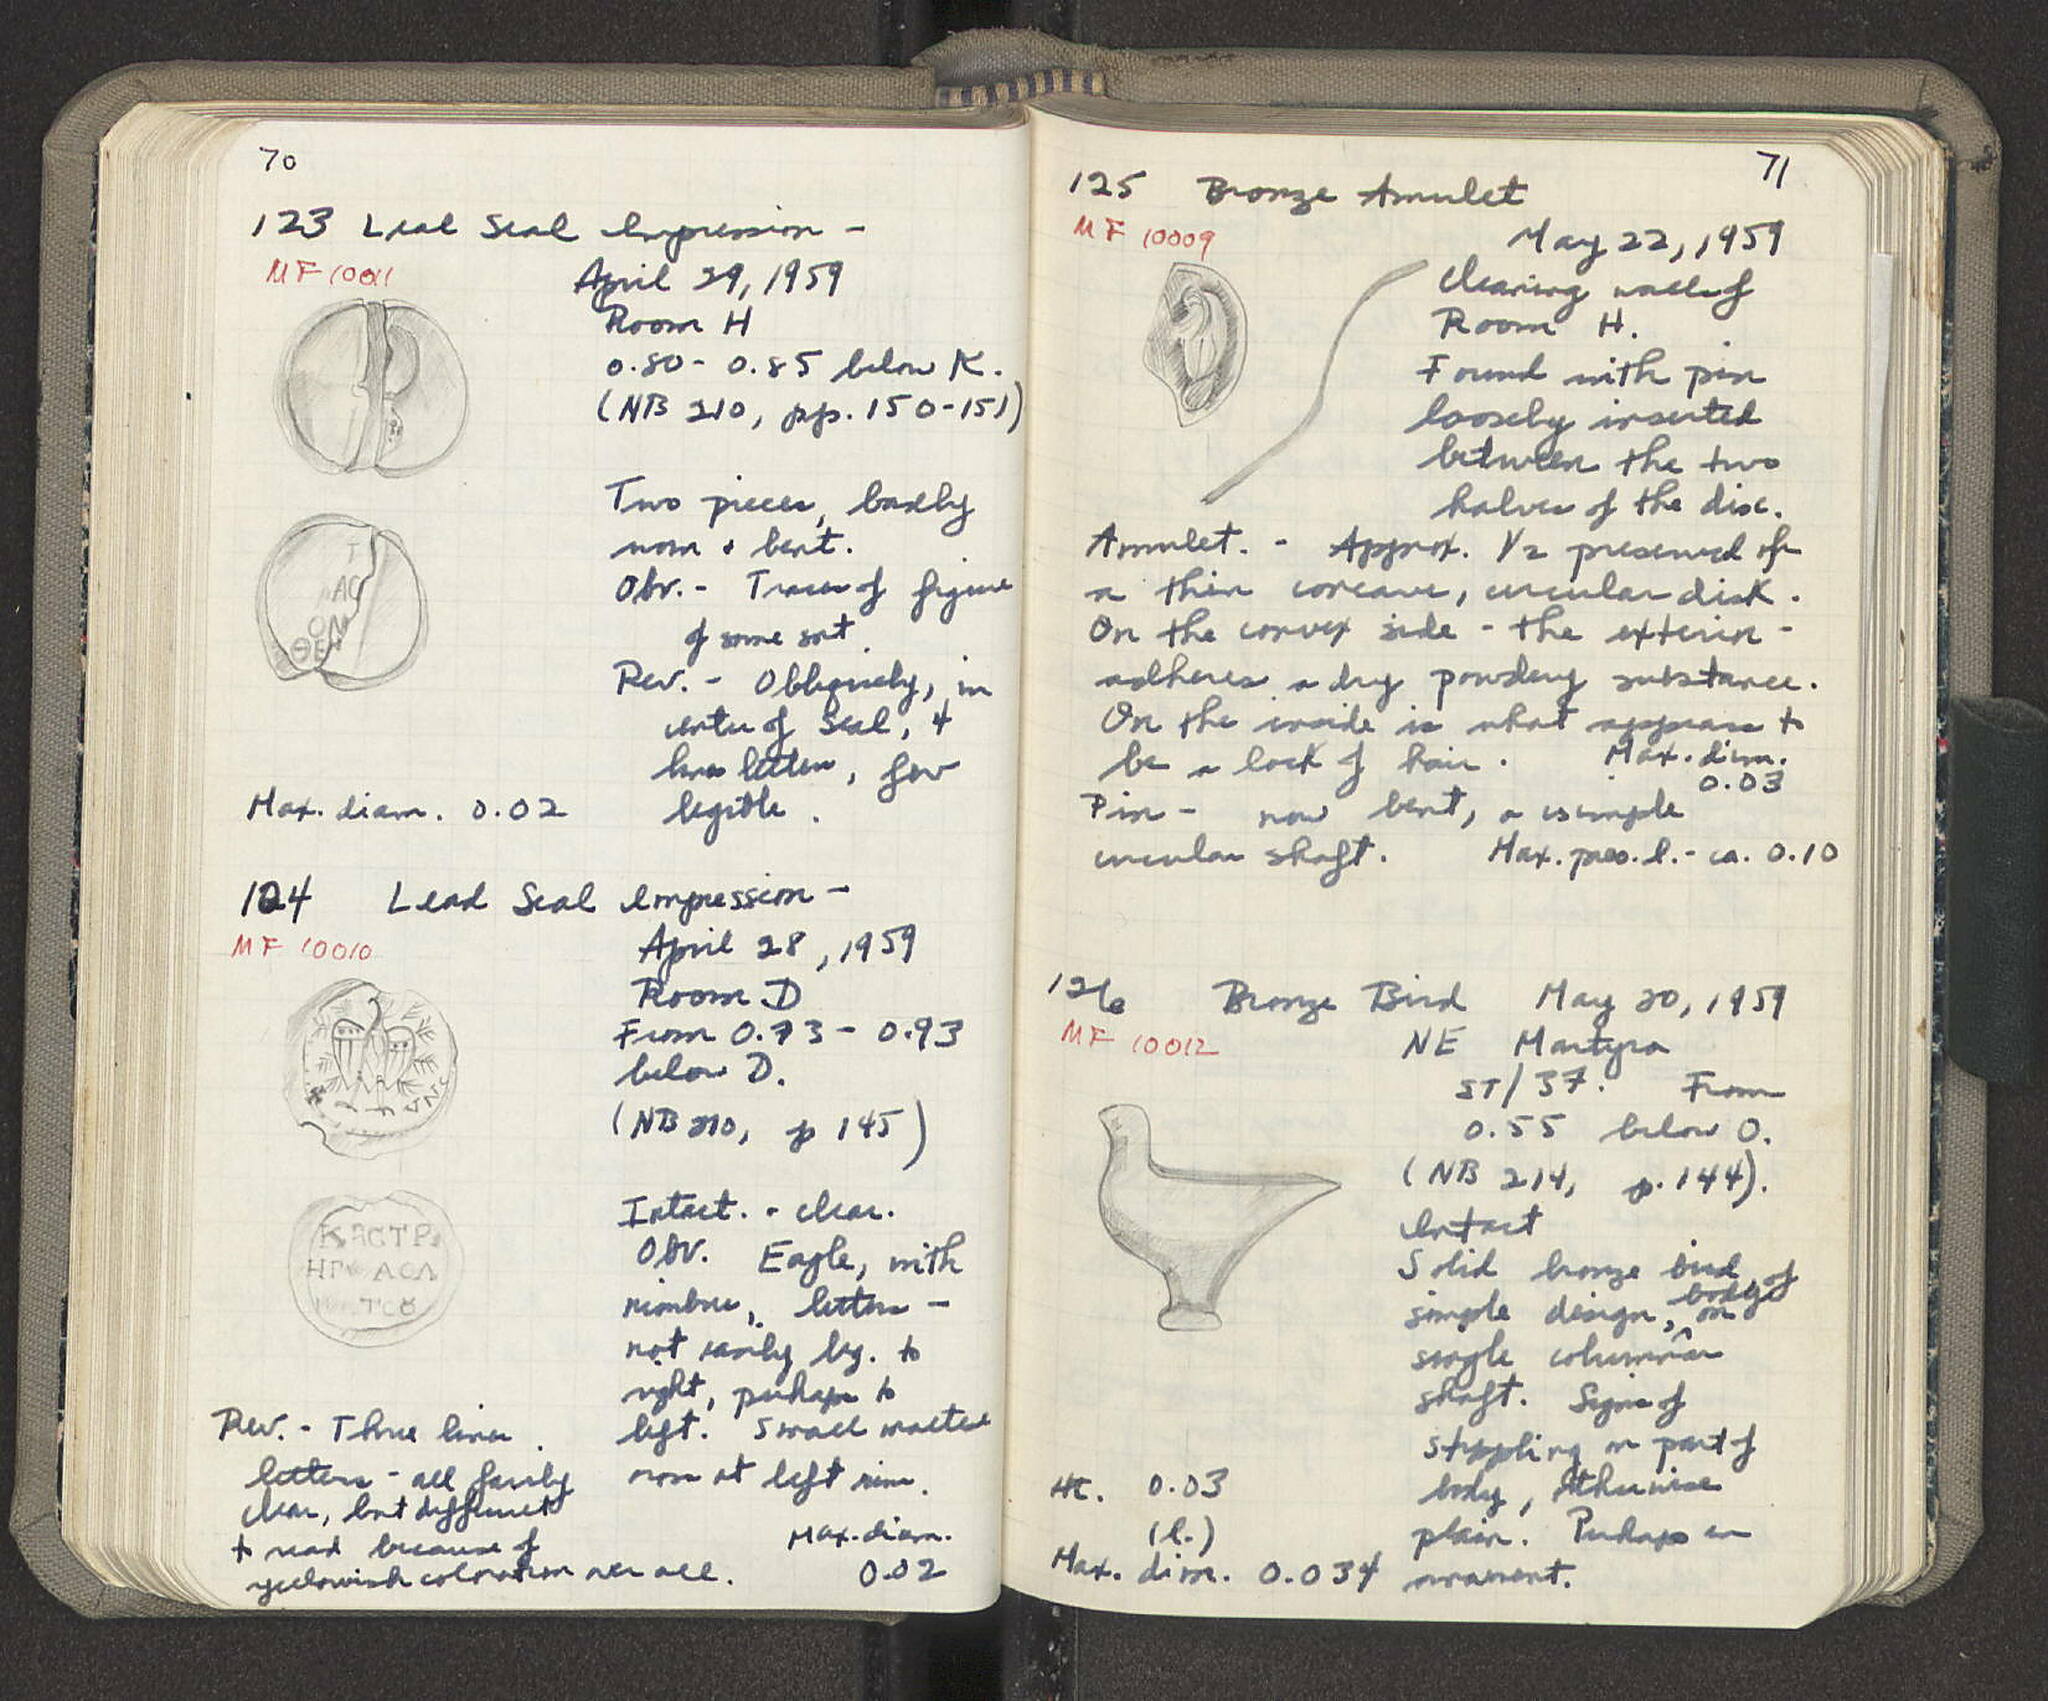 70
123 Lead Seal Impression -
MF 10011
April 29, 1959
Room H
0.80 - 0.85 below K.
(NB 210, pp. 150-151)
Two pieces, badly
worn & bent.
Obv. - Traces of figure
of some sort.
Rev. - Obliquely, in
center of seal, 4
lines letters, few
legible.
Max. diam. 0.02
124 Lead Seal Impression -
MF 10010
April 28, 1959
Room D
From 0.73 - 0.93
below D.
(NB 210, p 145)
ΚΑСΤΡ
Intact. - clear.
Obv. Eagle, with
nimbus, letters -
not easily leg. to
right, perhaps to
left. Small
worn at left rim.
Rev. - Three lines
letters - all fairly
clear, but difficult
to read because of
yellowish coloration over all.
Max. diam.
0.02
71
125 Bronze Amulet
MF 10009
May 22, 1959
Clearing wall of
Room H.
Found with pin
loosely inserted
between the two
halves of the disc.
Amulet. - Approx. 1/2 preserved of
a thin concave, circular disk.
On the convex side - the exterior -
adheres a dry powdery substance.
On the inside is what appears to
be a lock of hair. Max. dim.
0.03
Pin - now bent, a simple
circular shaft. Max. pres. l. - ca. 0.10
126 Bronze Bird May 20, 1959
MF 10012
NE Martyra
ST/37. From
0.55 below O.
(NB 214, p. 144).
Intact
Solid bronze bird, of
simple design, body on
single columnar
shaft. Signs of
stippling on part of
body, otherwise
plain. Perhaps an
ornament.
Ht. 0.03
(l.)
Max. dim. 0.034